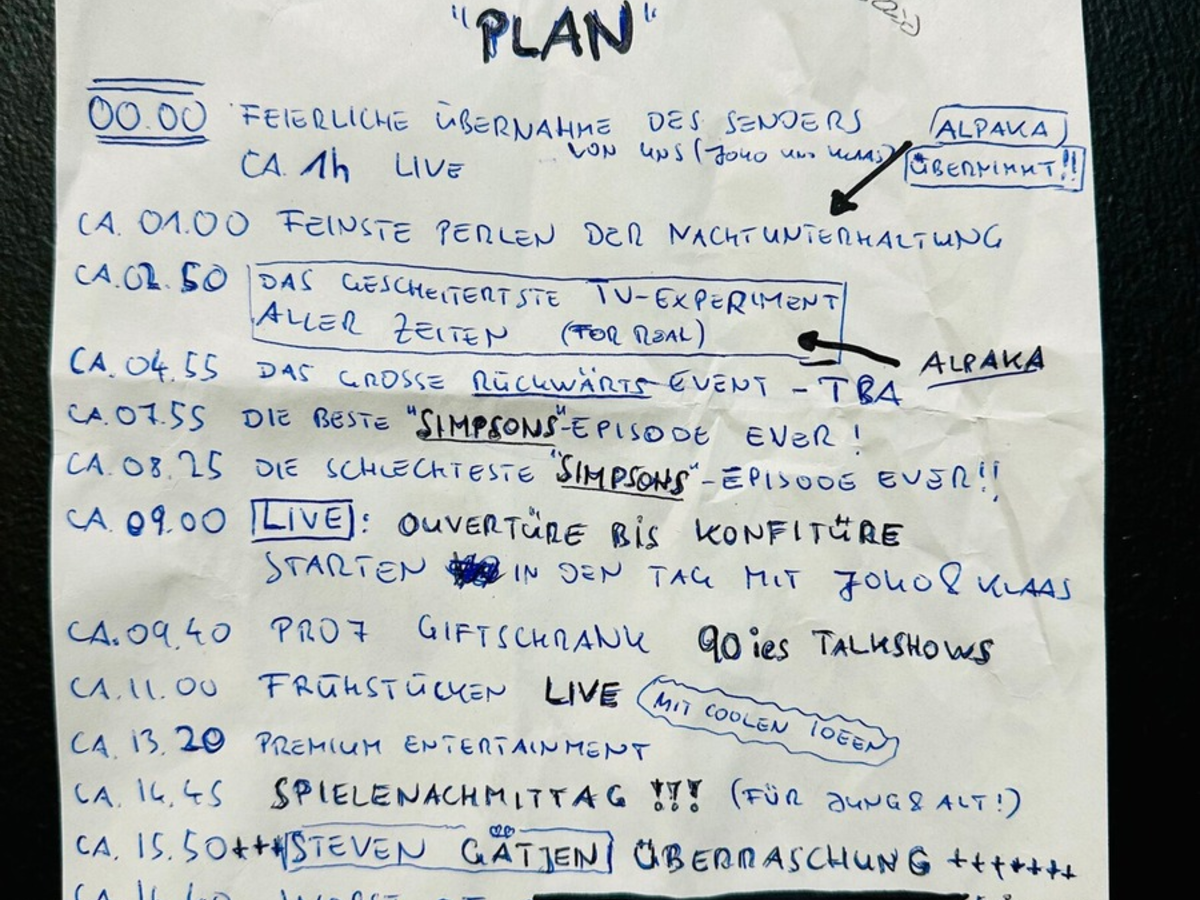 "PLAN"
00.00 FEIERLICHE ÜBERNAHME DES SENDERS
VON UNS (JOKO UND KLAAS)
CA. 1h LIVE
ALPAKA
ÜBERNIMMT!!
CA. 01.00 FEINSTE PERLEN DER NACHTUNTERHALTUNG
CA. 02.50 DAS GESCHEITERTSTE TV-EXPERIMENT
ALLER ZEITEN (FOR REAL)
ALPAKA
CA. 04.55 DAS GROSSE RÜCKWÄRTS-EVENT - TBA
CA. 07.55 DIE BESTE "SIMPSONS"-EPISODE EVER!
CA. 08.25 DIE SCHLECHTESTE "SIMPSONS"-EPISODE EVER!!
CA. 09.00 LIVE: OUVERTÜRE BIS KONFITÜRE
STARTEN IN DEN TAG MIT JOKO & KLAAS
CA. 09.40 PRO7 GIFTSCHRANK 90ies TALKSHOWS
CA. 11.00 FRÜHSTÜCKEN LIVE MIT COOLEN IDEEN
CA. 13.20 PREMIUM ENTERTAINMENT
CA. 14.45 SPIELENACHMITTAG !!! (FÜR JUNG & ALT!)
CA. 15.50 +++ STEVEN GÄTJEN ÜBERRASCHUNG +++++++